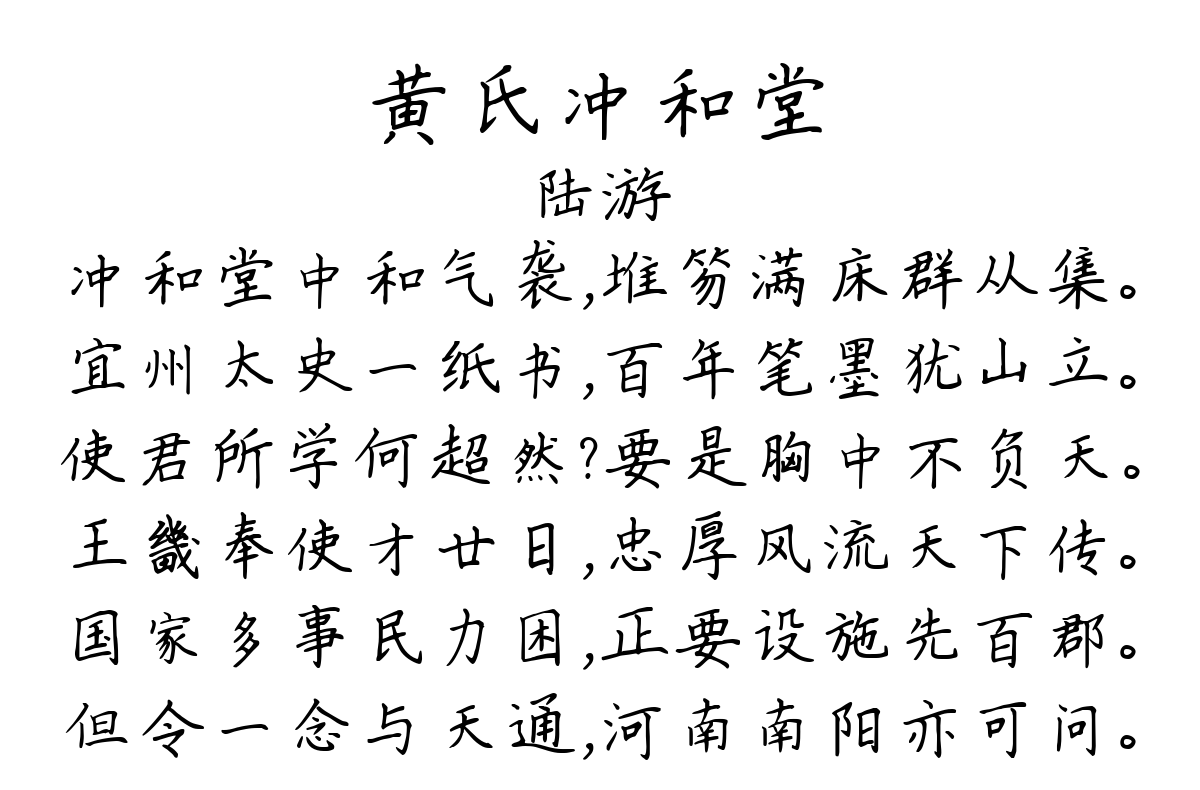 黄氏冲和堂
陆游
冲和堂中和气袭,堆笏满床群从集。
宜州太史一纸书,百年笔墨犹山立。
使君所学何超然?要是胸中不负天。
王畿奉使才廿日,忠厚风流天下传。
国家多事民力困,正要设施先百郡。
但令一念与天通,河南南阳亦可问。